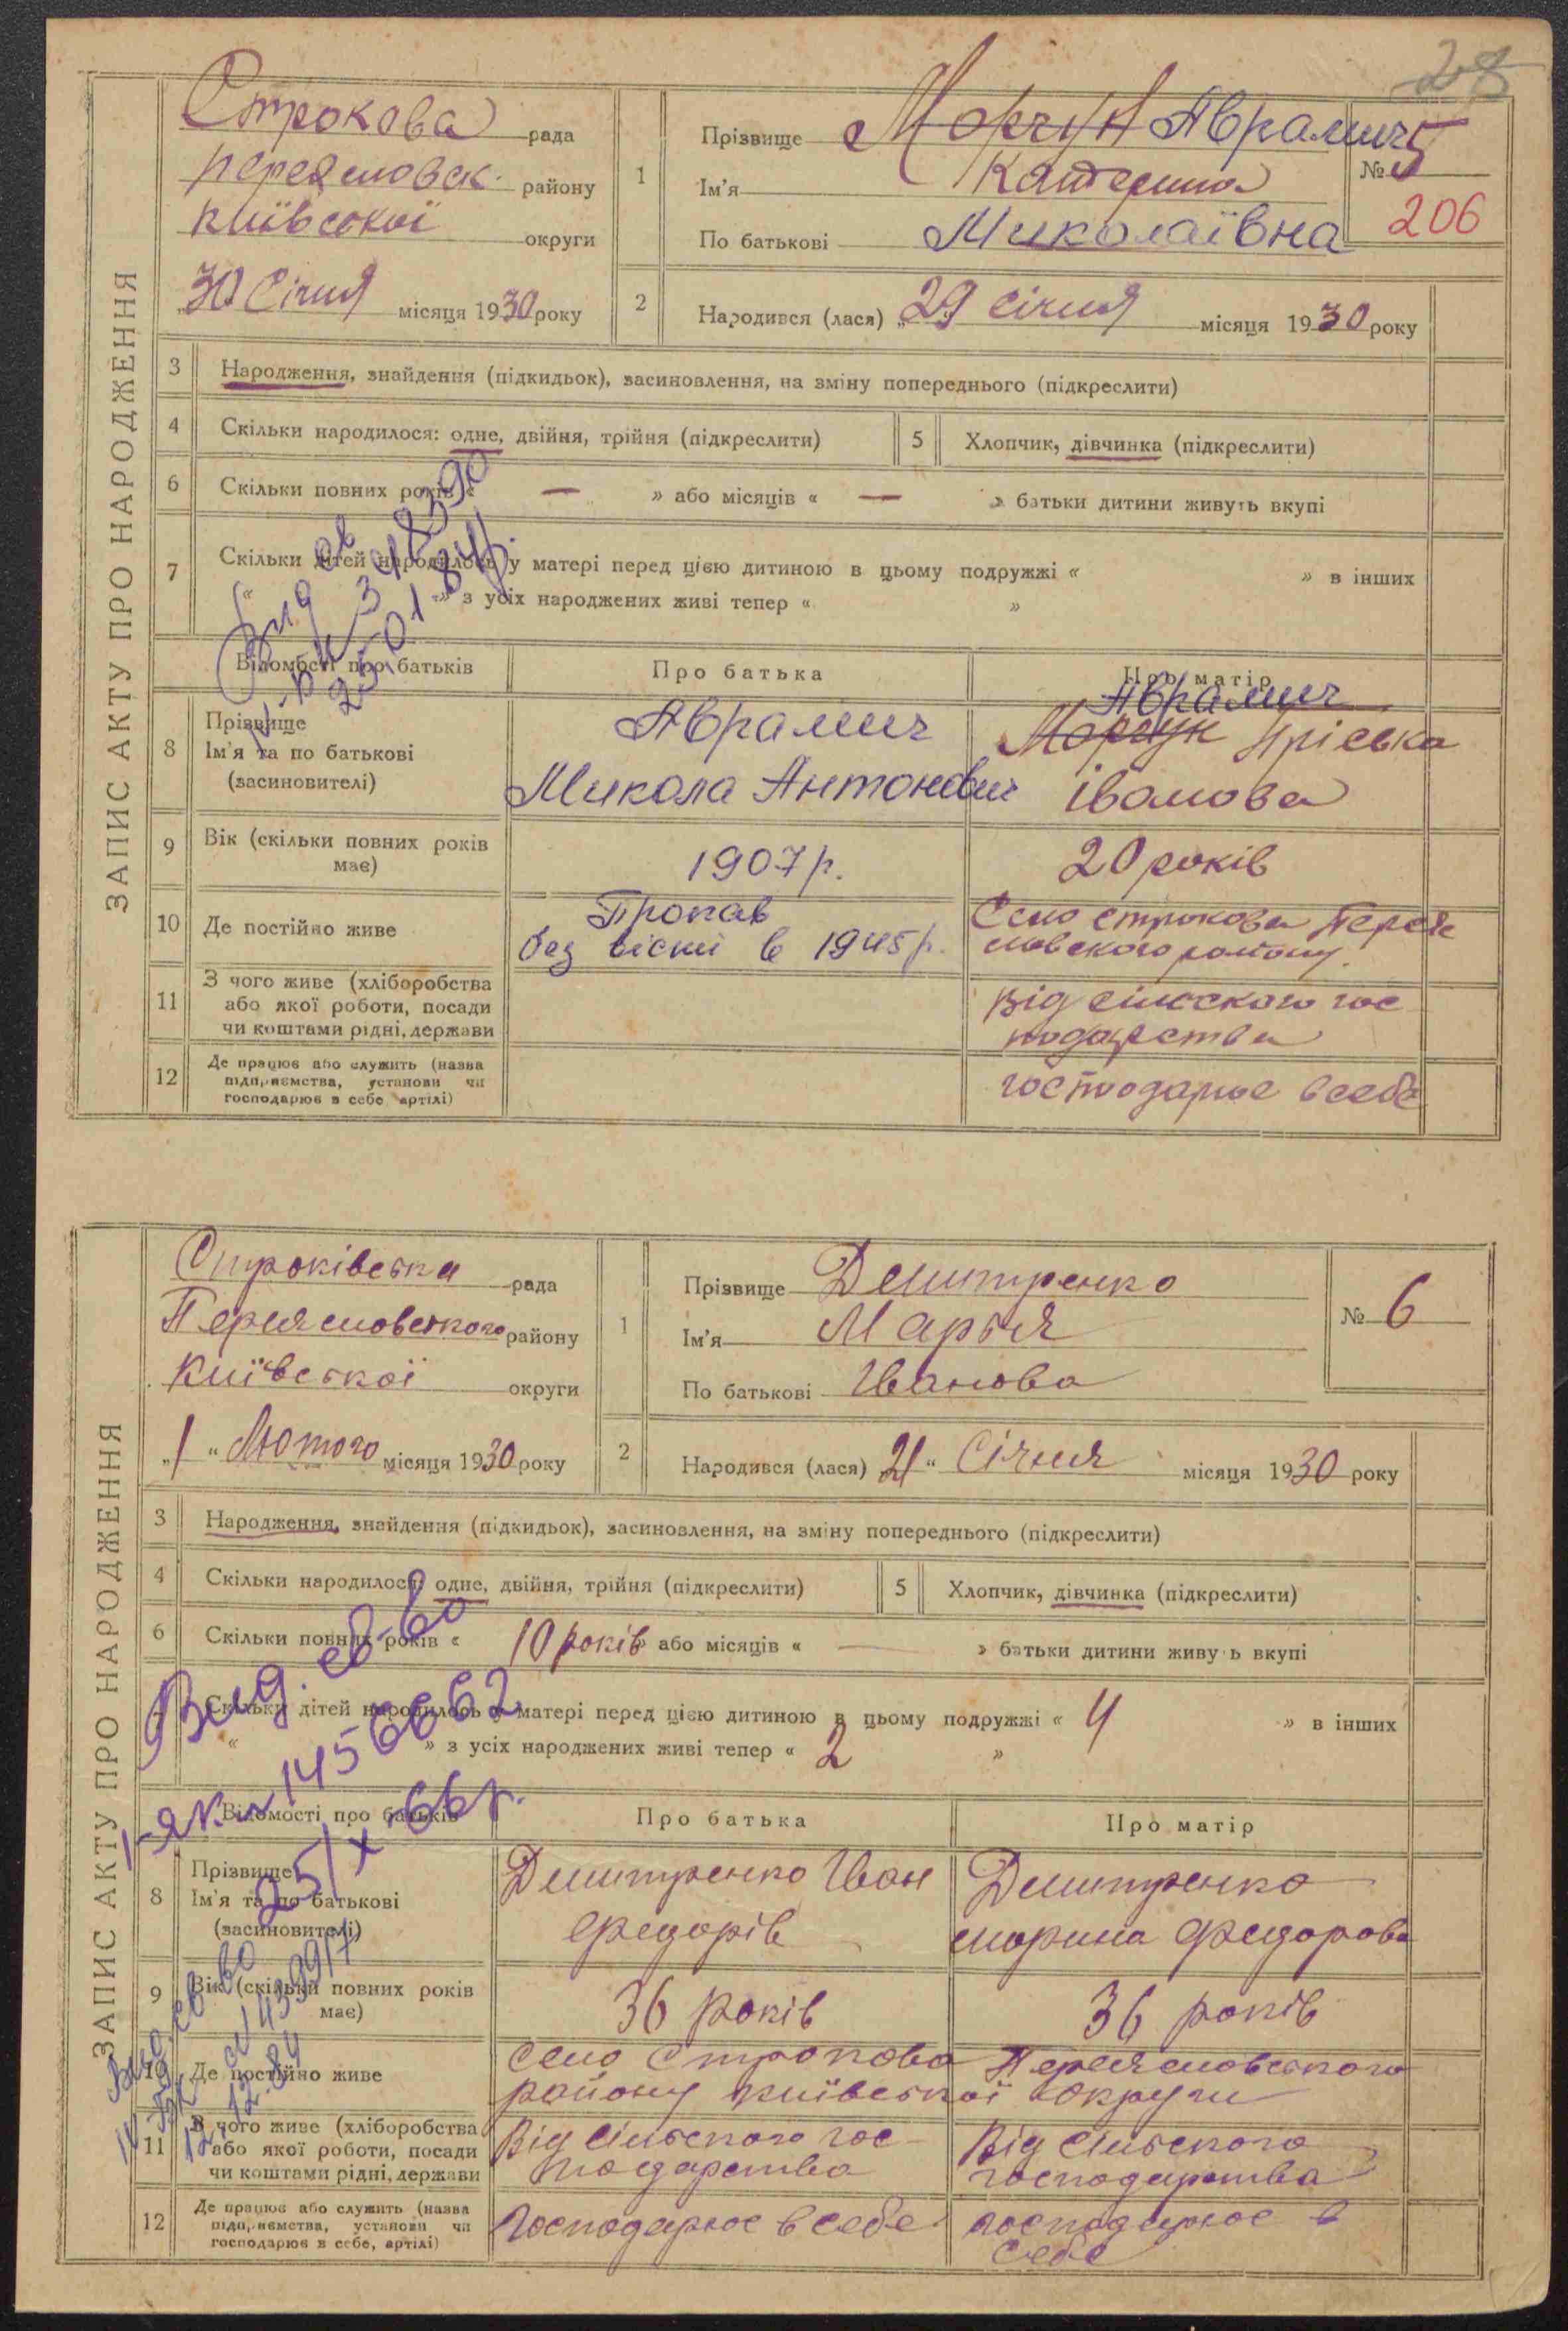 28
ЗАПИС АКТУ ПРО НАРОДЖЕННЯ
Строкова рада
Переясловск. району
Київської округи
„30 Січня місяця 1930 року
1
Прізвище Моргун Аврамич
Ім'я Катерина
По батькові Миколаївна
№ 5
206
2
Народився (лася) „29 Січня місяця 1930 року
3 Народження, знайдення (підкидьок), засиновлення, на зміну попереднього (підкреслити)
4 Скільки народилося: одне, двійня, трійня (підкреслити)
5 Хлопчик, дівчинка (підкреслити)
6 Скільки повних років « — » або місяців « — » батьки дитини живуть вкупі
7 Скільки дітей народилось у матері перед цією дитиною в цьому подружжі « » в інших
« » з усіх народжених живі тепер « »
Відомості про батьків
Про батька
Про матір
8 Прізвище
Ім'я та по батькові
(засиновителі)
Аврамич
Микола Антонович
Аврамич
Моргун Пріська
Іванова
9 Вік (скільки повних років
має)
1907 р.
20 років
10 Де постійно живе
Пропав
без вісти в 1945 р.
Село Строкова Перея
словского району.
11 З чого живе (хліборобства
або якої роботи, посади
чи коштами рідні, держави
Від сільского гос
подарства
12 Де працює або служить (назва
підприємства, установи чи
господарює в себе, артілі)
господарює в себе
ЗАПИС АКТУ ПРО НАРОДЖЕННЯ
Строківська рада
Переясловського району
Київської округи
„1“ Лютого місяця 1930 року
1
Прізвище Дмитренко
Ім'я Марья
По батькові Іванова
№ 6
2
Народився (лася) 21“ Січня місяця 1930 року
3 Народження, знайдення (підкидьок), засиновлення, на зміну попереднього (підкреслити)
4 Скільки народилося: одне, двійня, трійня (підкреслити)
5 Хлопчик, дівчинка (підкреслити)
6 Скільки повних років « 10 років » або місяців « — » батьки дитини живуть вкупі
Скільки дітей народилось у матері перед цією дитиною в цьому подружжі « 4 » в інших
« » з усіх народжених живі тепер « 2 »
Вид. св-во
1456662
25/X-66 р.
Відомості про батьків
Про батька
Про матір
8 Прізвище
Ім'я та по батькові
(засиновителі)
Дмитренко Іван
Федорів
Дмитренко
Марина Федорова
9 Вік (скільки повних років
має)
36 років
36 років
10 Де постійно живе
Село Строкова Переясловського
району Київської округи
11 З чого живе (хліборобства
або якої роботи, посади
чи коштами рідні, держави
Від сільского гос
подарства
Від сільского
господарства
12 Де працює або служить (назва
підприємства, установи чи
господарює в себе, артілі)
Господарює в себе
господарює в
себе